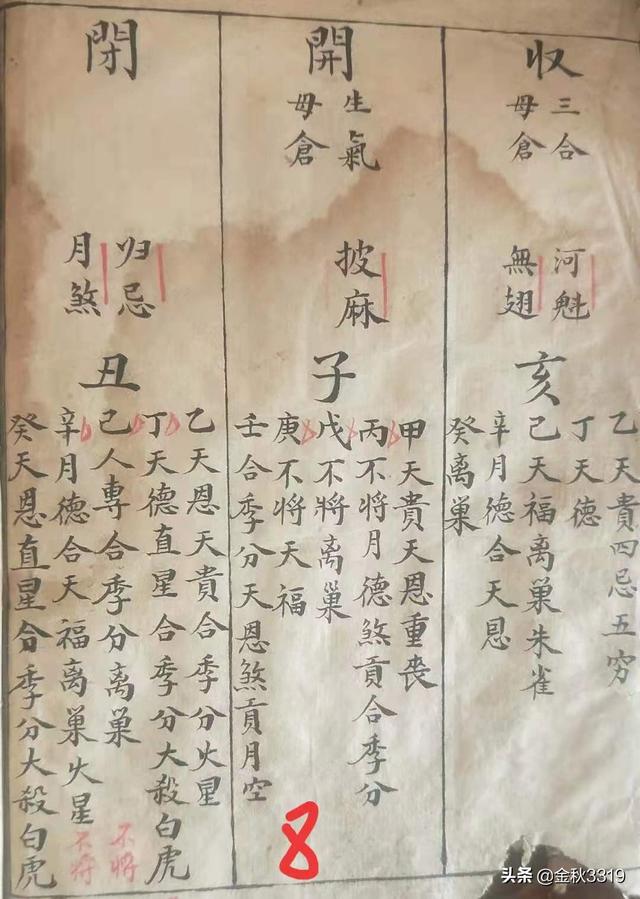 収
三合
母倉
河魁
無翅
亥
乙天貴四忌五穷
丁天德
己天福离巢朱雀
辛月德合天恩
癸离巢
開
生氣
母倉
披麻
子
甲天貴天恩重丧
丙不将月德煞貢合季分
戊不将离巢
庚不将天福
壬合季分天恩煞貢月空
閉
归忌
月煞
丑
乙天恩天貴合季分火星
丁天德直星合季分大殺白虎
己人專合季分离巢
辛月德合天福离巢火星
癸天恩直星合季分大殺白虎
不将
不将
8
头条 @金秋3319